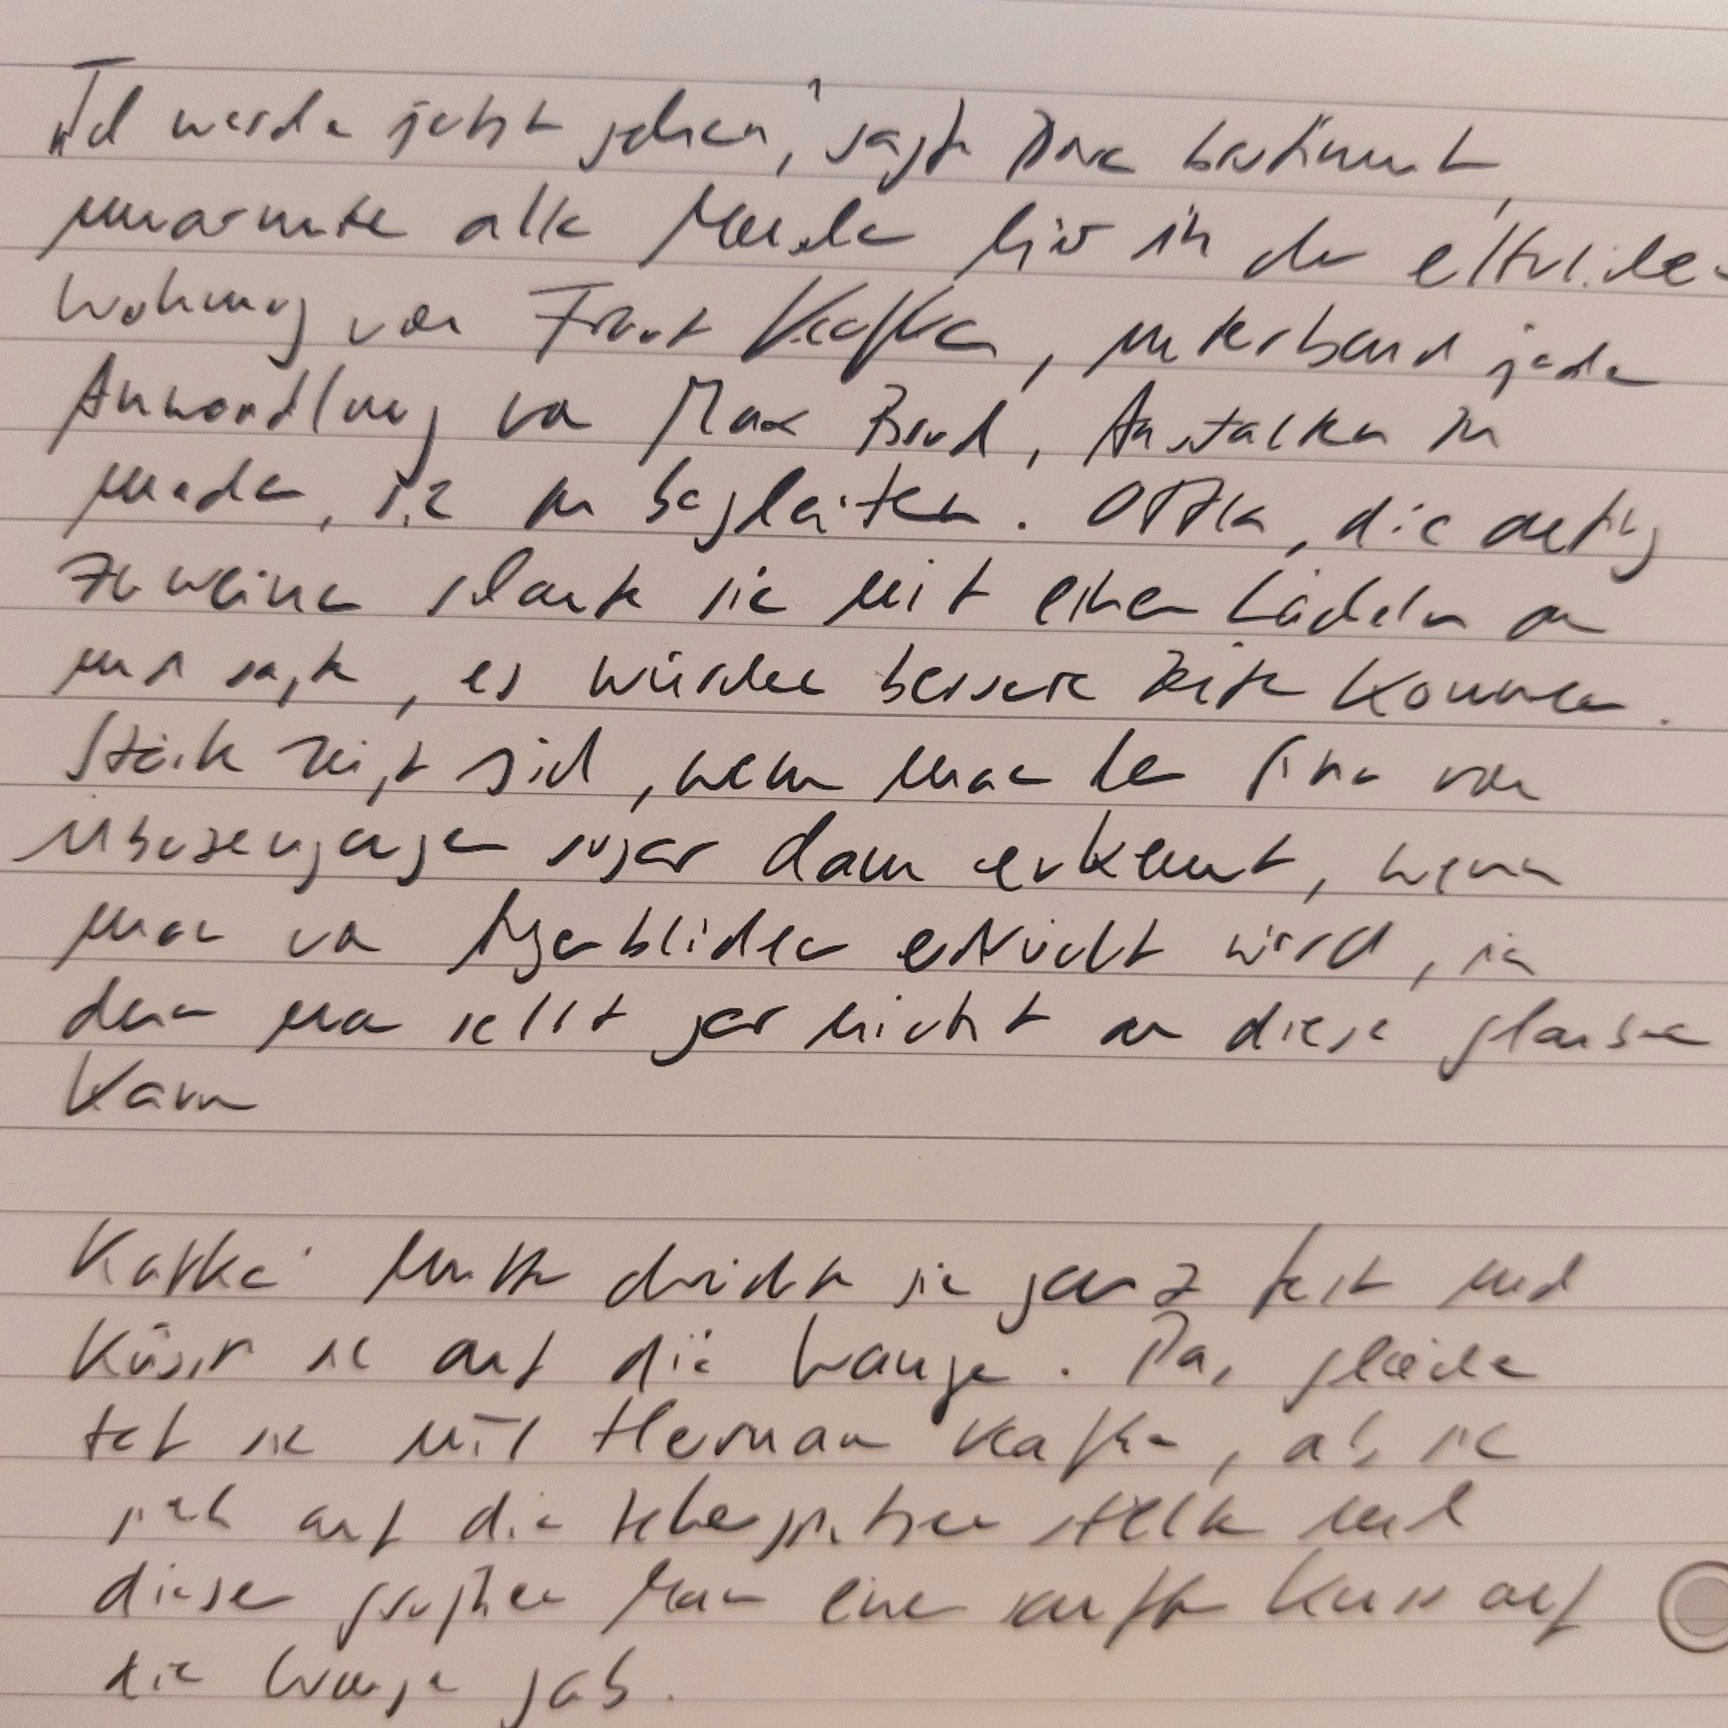 „Ich werde jetzt gehen", sagte Dora bestimmt,
umarmte alle Menschen hier in der elterlichen
Wohnung von Franz Kafka, unterband jede
Anwandlung von Max Brod, Anstalten zu
machen, sie zu begleiten. Ottla, die anfing
zu weinen schaute sie mit einem Lächeln an
und sagte, es würden bessere Zeiten kommen.
Stärke zeigt sich, wenn man den Sinn von
Überzeugungen sogar dann erkennt, wenn
man von Augenblicken erdrückt wird, in
denen man selbst gar nicht an diese glauben
kann
Kafkas Mutter drückte sie ganz fest und
küsste sie auf die Wange. Das gleiche
tat sie mit Hermann Kafka, als sie
sich auf die Zehenspitzen stellte und
diesem großen Mann einen sanften Kuss auf
die Wange gab.